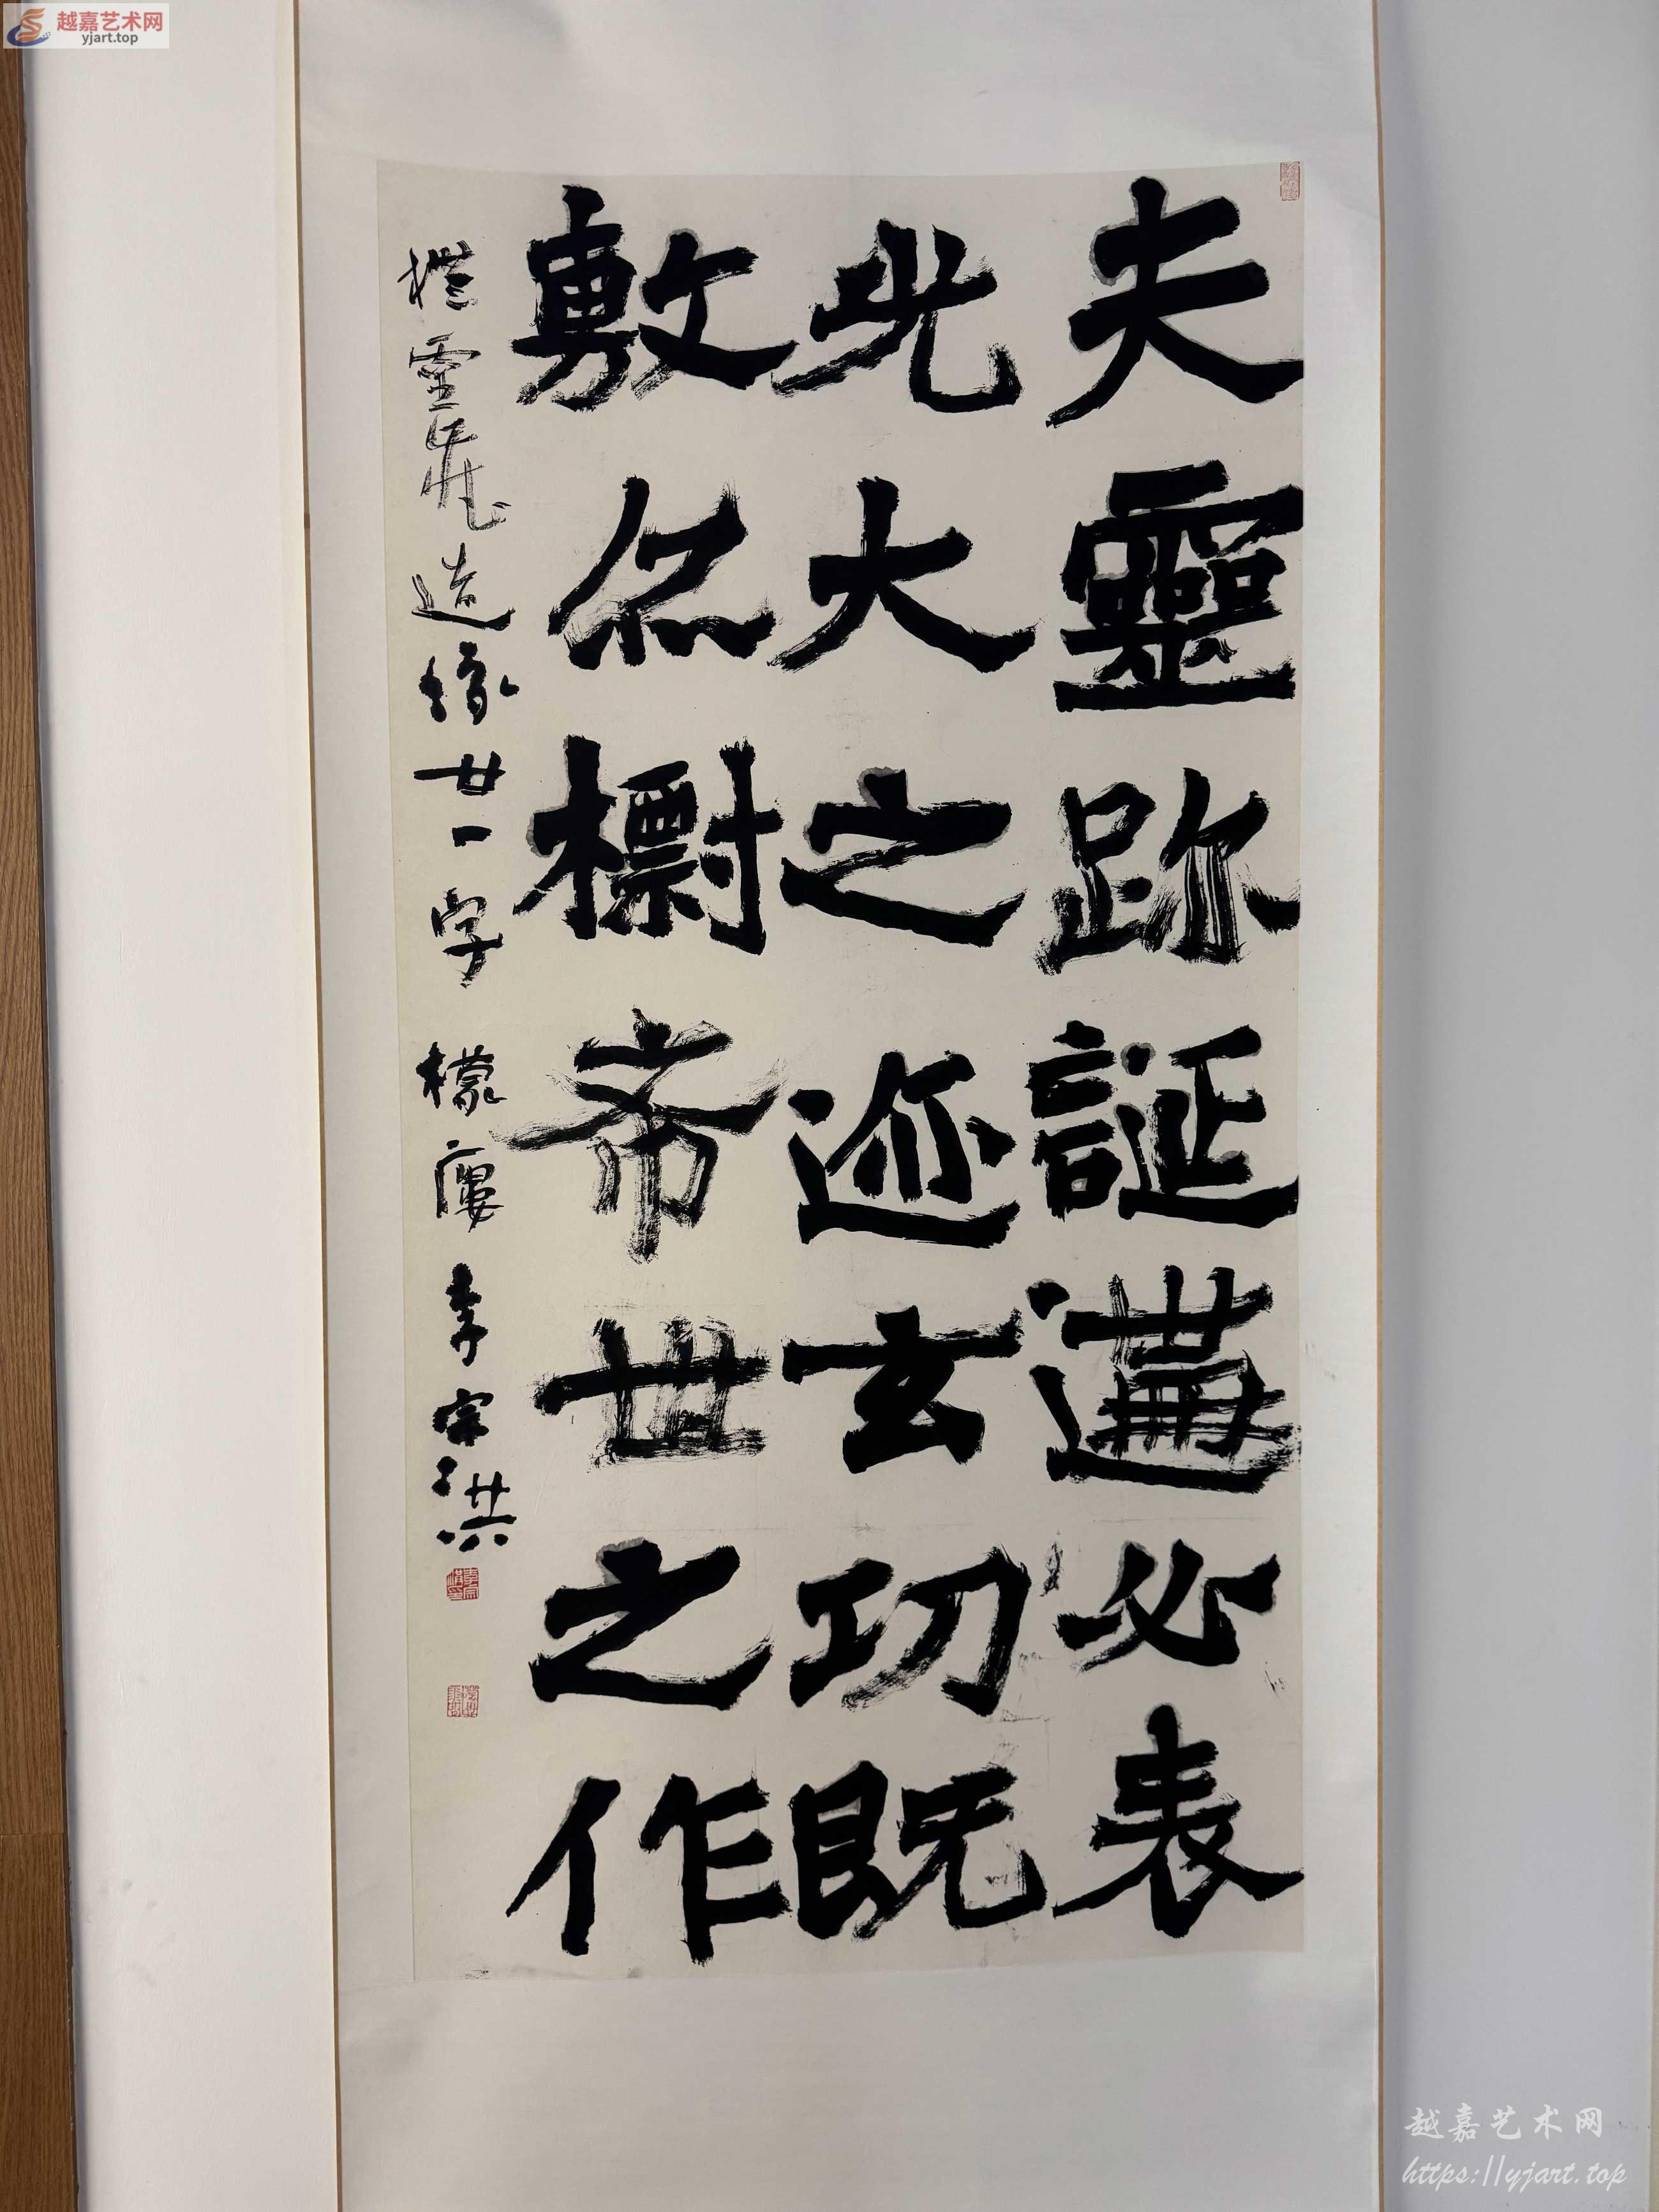 越嘉艺术网
yjart.top
夫靈跡誕遘必表
光大之迹玄功既
敷亦標希世之作
橅靈藏造像廿一字 檬廔 李宗洪
越嘉艺术网
https://yjart.top